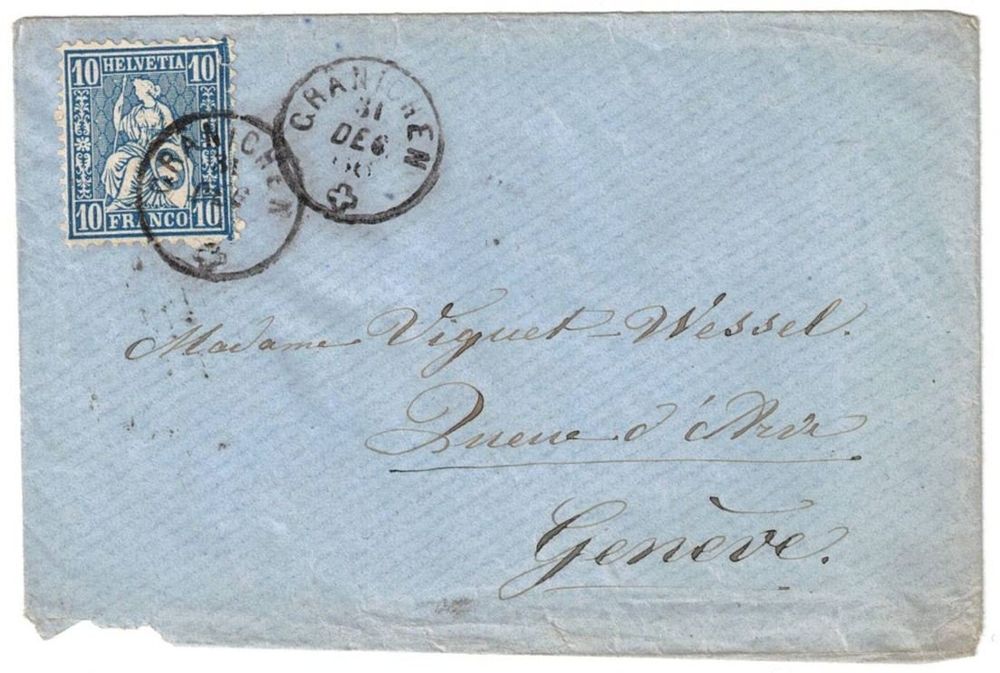 10 HELVETIA 10
10 FRANCO 10
GRANICHEN
GRANICHEN
31
DEC
Madame Viguet-Wessel.
Queue d'Arve
Genève.